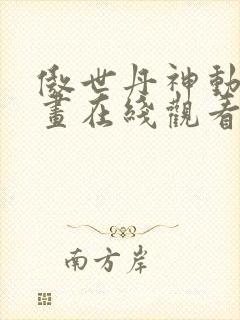 傲世丹神動
畫在綫觀看
南方岸